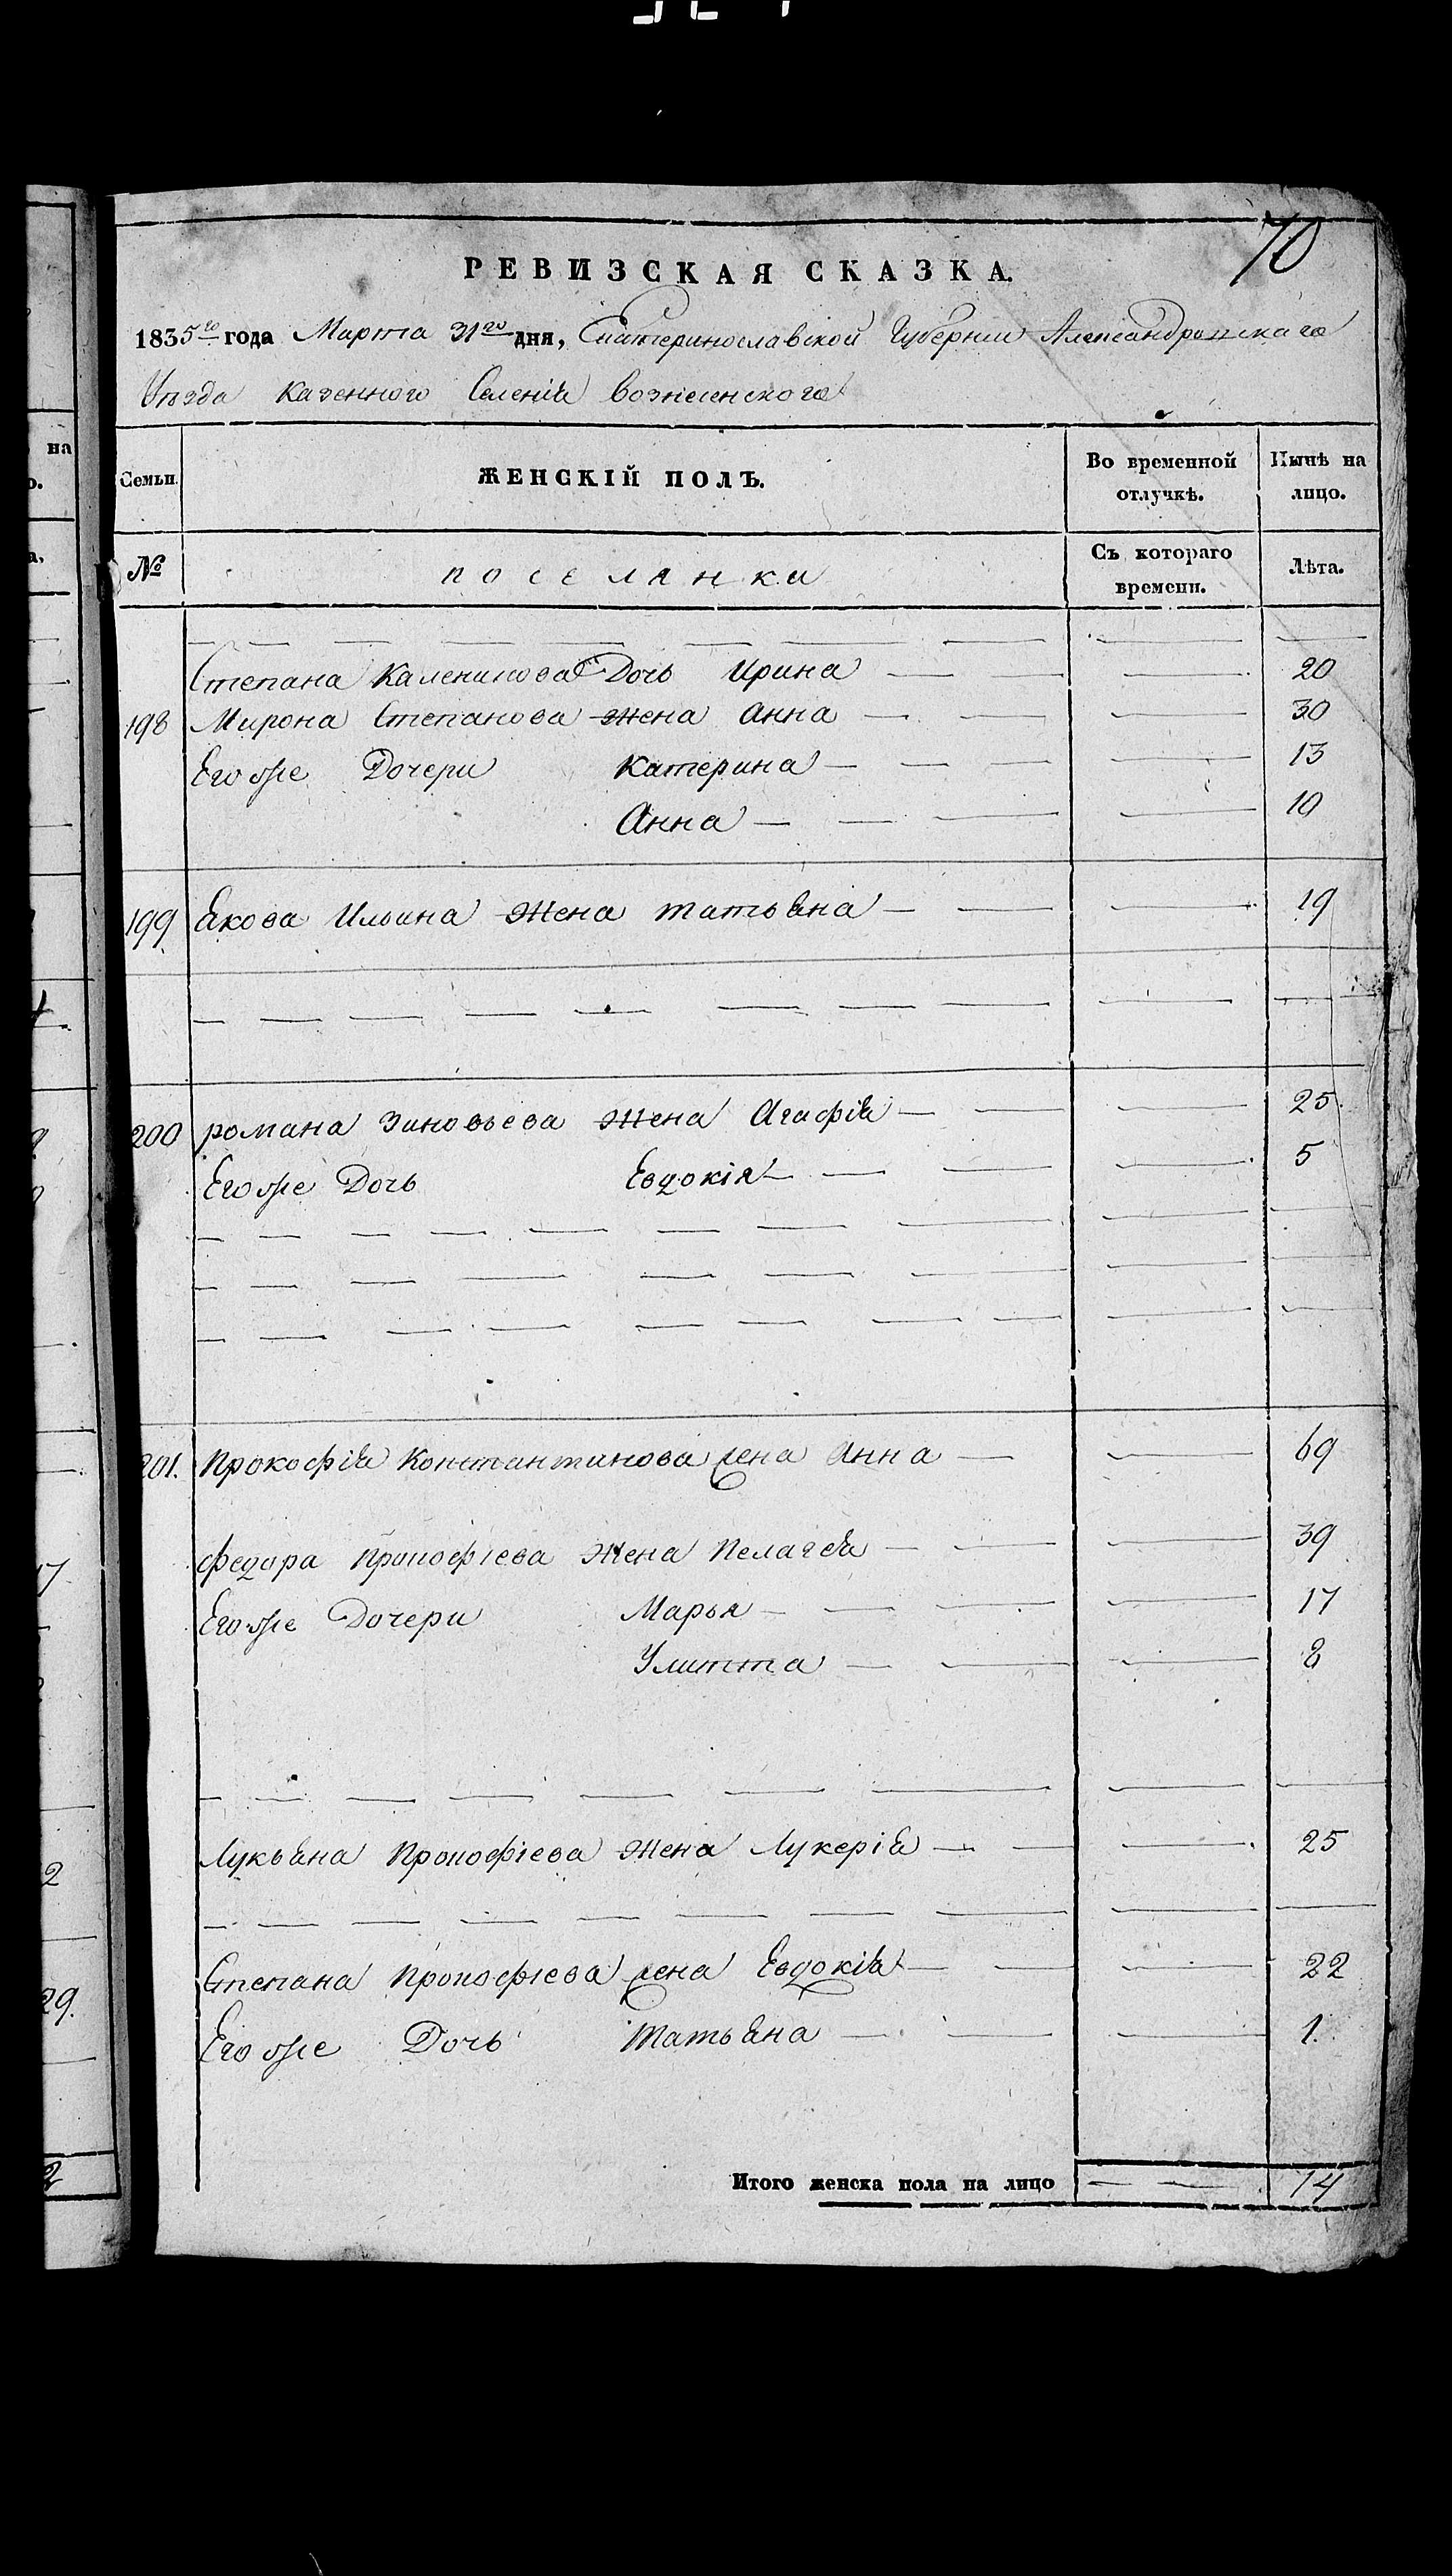 70
РЕВИЗСКАЯ СКАЗКА.
1835го года Марта 31го дня, Екатеринославской Губернии Александровскаго
Уѣзда казенного Селенія вознесенского
Семьи. ЖЕНСКІЙ ПОЛЪ. Во временной отлучкѣ. Нынѣ на лицо.
№ поселянки Съ котораго времени. Лѣта.
Степана Каленикова Дочь Ирина 20
198 Мирона Степанова жена Анна 30
Егоже Дочери Катерина 13
Анна 10
199 Якова Ильина Жена татьяна 19
200 романа Зиновьева Жена Агафія 25
Егоже Дочь Евдокія 5
201. Прокофія Константинова жена Анна 69
федора прокофіева Жена Пелагея 39
Егоже Дочери Марья 17
Улитта 8
Лукьяна Прокофіева Жена Лукерія 25
Степана прокофіева жена Евдокія 22
Егоже Дочь Татьяна 1.
Итого женска пола на лицо 14
на
о.
а,
17
2
29.
2